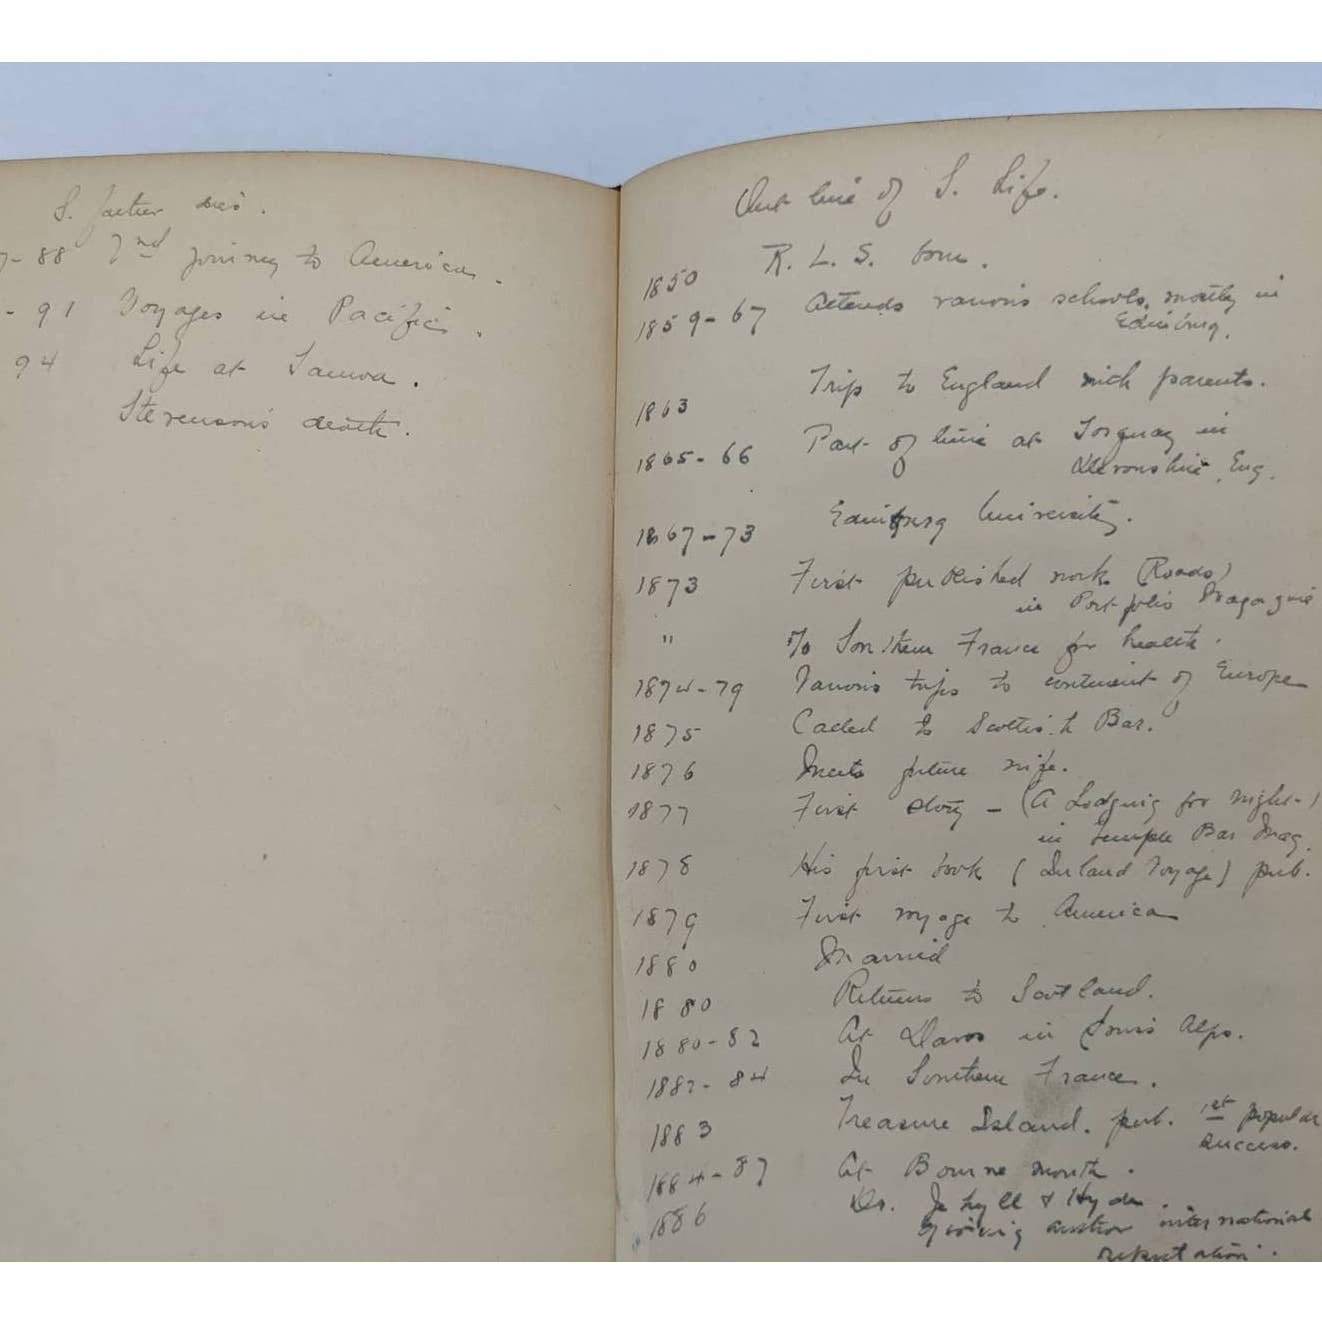 S. father dies.
7-88 2nd journey to America.
- 91 Voyages in Pacific.
94 Life at Samoa.
Stevenson's death.
Out line of S. Life.
1850 R. L. S. born.
1859-67 Attends various schools, mostly in
Edinburg.
1863 Trip to England with parents.
1865-66 Part of time at Torquay in
Devonshire, Eng.
1867-73 Edinburg University.
1873 First published work (Roads)
in Portfolio Magazine
" To Southern France for health.
1874-79 Various trips to continent of Europe
1875 Called to Scottish Bar.
1876 Meets future wife.
1877 First story - (A Lodging for night)
in Temple Bar Mag.
1878 His first book (Inland Voyage) pub.
1879 First voyage to America
1880 Married
1880 Returns to Scotland.
1880-82 At Davos in Swiss Alps.
1882-84 In Southern France.
1883 Treasure Island. pub. 1st popular
success.
1884-87 At Bournemouth.
1886 Dr. Jekyll & Hyde.
giving author international
reputation.